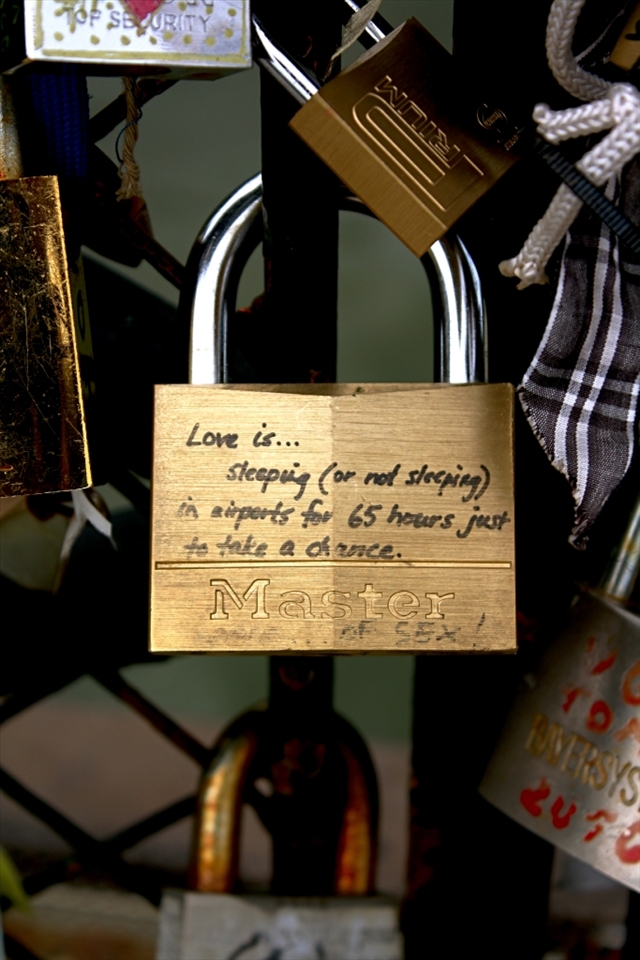 TOP SECURITY
RIUM
Love is...
sleeping (or not sleeping)
in airports for 65 hours just
to take a chance.
Master
OF SEX!